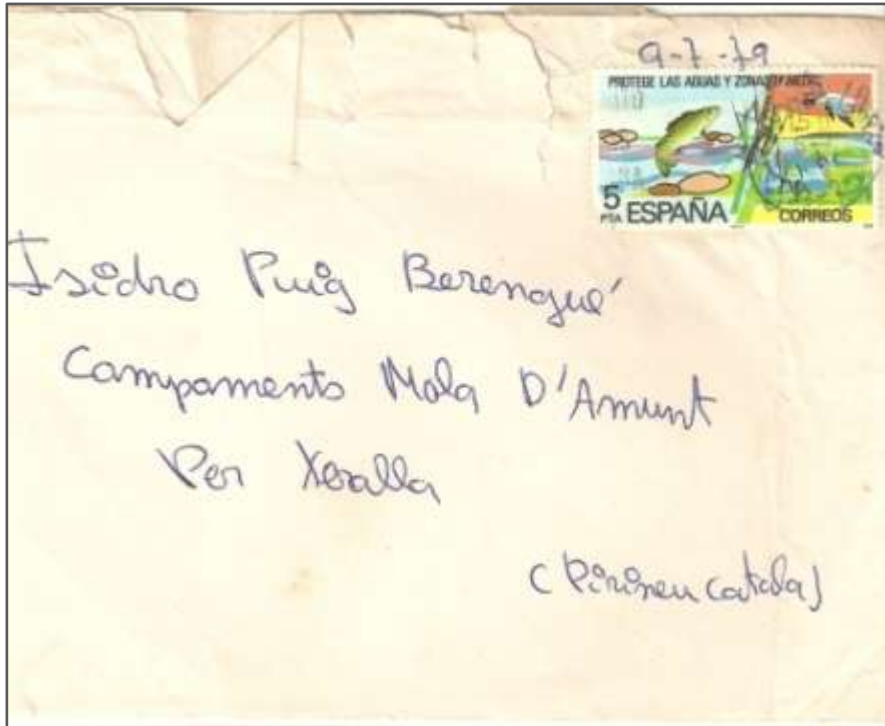 9-7-79
PROTEGE LAS AGUAS Y ZONAS
5
PTA ESPAÑA CORREOS
Isidro Puig Berengué
Campamento Mola D'Amunt
Per Xeralla
(Pirineu català)